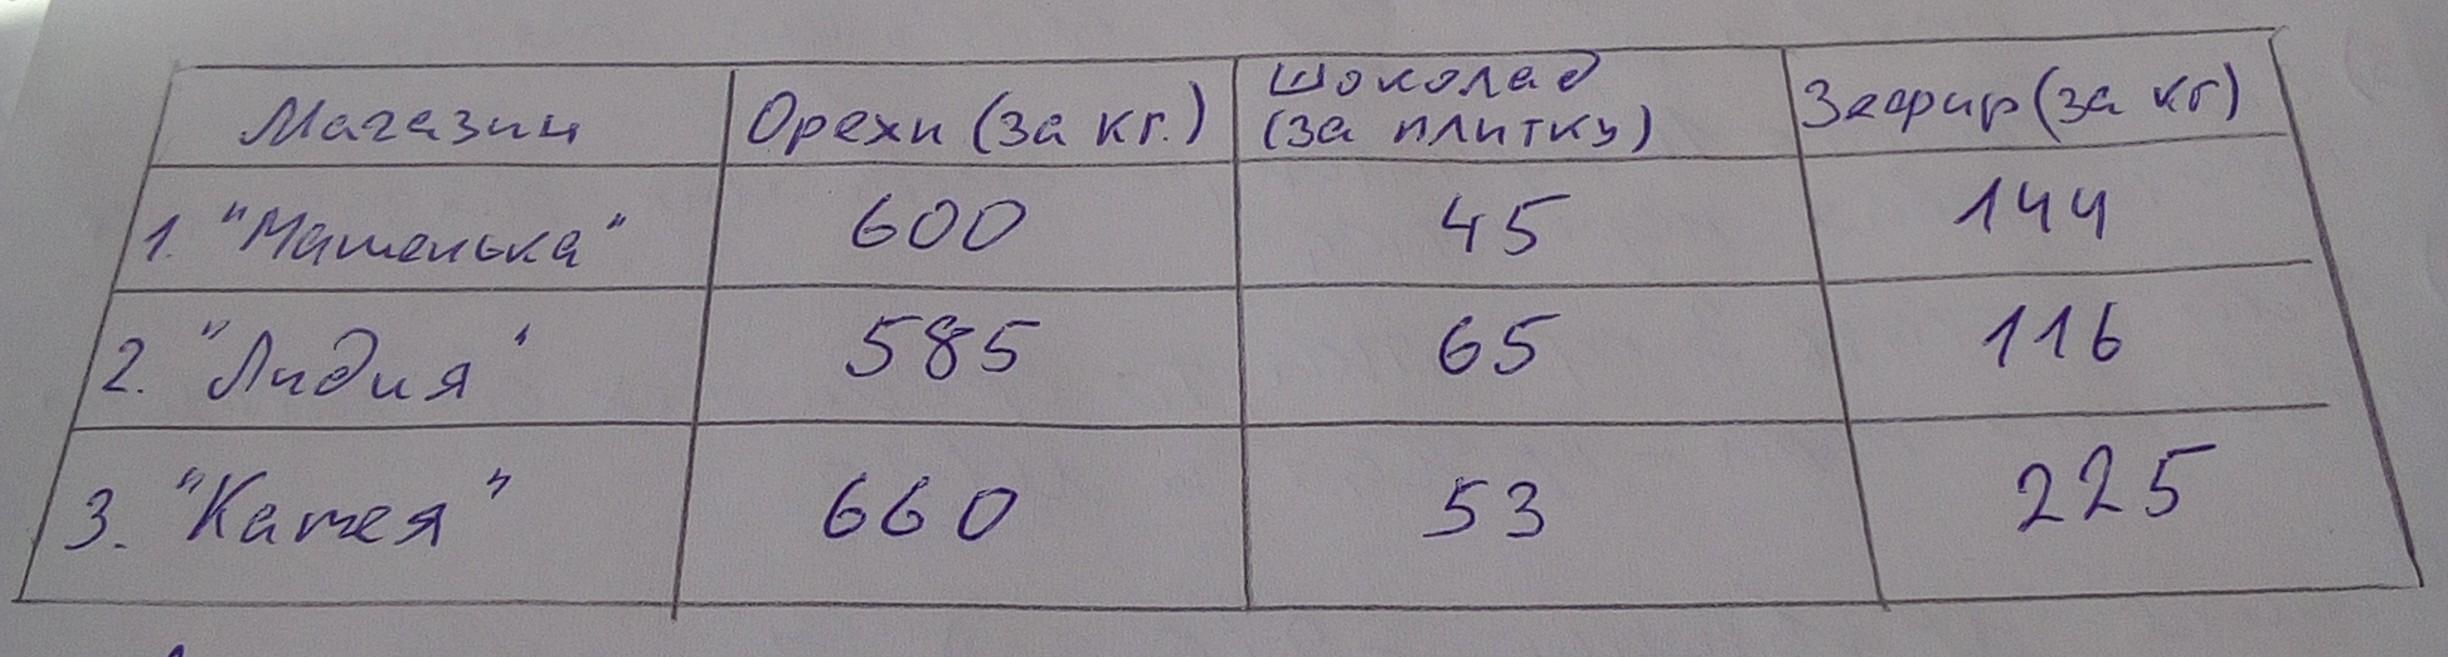 Магазин Орехи (за кг.) Шоколад (за плитку) Зефир (за кг)
1. "Машенька" 600 45 144
2. "Лидия" 585 65 116
3. "Катея" 660 53 225